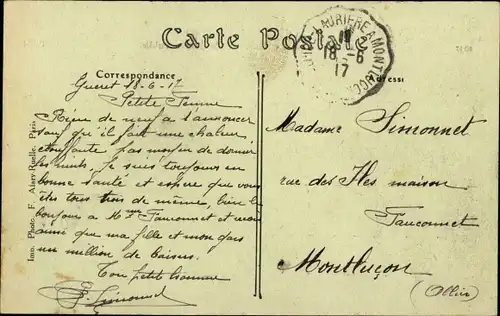 Carte Postale
LAURIÈRE A MONTLUÇON
18 -6
17
Correspondance
Adresse
Guéret 18-6-17
Petite Femme
Rien de neuf a t'annoncer
sauf qu'il fait une chaleur
étouffante pas moyen de dormir
les nuits. Je suis toujours en
bonne santé et espère que vous
êtes tous trois de même, bien le
bonjour à Mme Fauconnet et
ainsi que ma fille et mon gars
un million de baisers.
Ton petit homme
Simonnet
Madame Simonnet
rue des Iles maison
Fauconnet
Montluçon
(Allier)
Imp. Photo. F. Ruelle, Paris